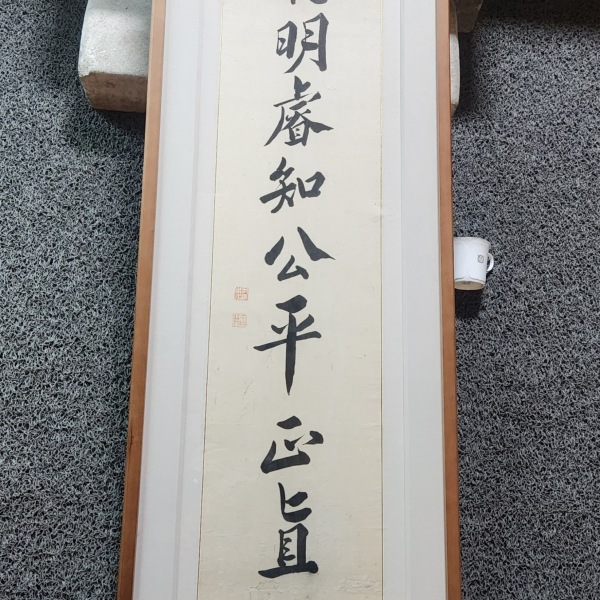 明睿知公平正直